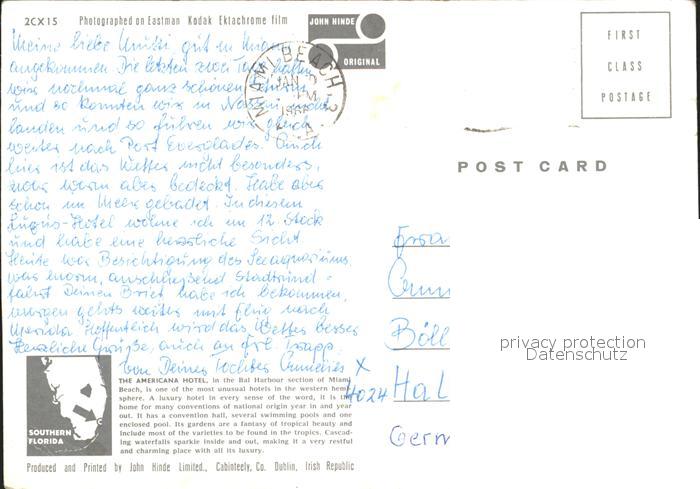 2CX15 Photographed on Eastman Kodak Ektachrome film
JOHN HINDE
ORIGINAL
MIAMI BEACH
JAN
PM
FIRST
CLASS
POSTAGE
POST CARD
Meine liebe Mutti, gut in Miami
angekommen. Die letzten zwei Tage hatten
wir nochmal ganz schönen Sturm
und so konnten wir in Nassau nicht
landen und so fuhren wir gleich
weiter nach Port Everglades. Auch
hier ist das Wetter nicht besonders,
zwar warm aber bedeckt. Habe aber
schon im Meer gebadet. In diesem
Luxus-Hotel wohne ich im 12. Stock
und habe eine herrliche Sicht.
Heute war Besichtigung des Seaquariums,
was enorm, anschließend Stadtrund-
fahrt. Deinen Brief habe ich bekommen,
morgen gehts weiter mit Flug nach
Merida. Hoffentlich wird das Wetter besser
Herzliche Grüße, auch an Frl.
von Deiner Tochter Annelies
Frau
Böll
4024 Hal
Germ
privacy protection
Datenschutz
SOUTHERN
FLORIDA
THE AMERICANA HOTEL, in the Bal Harbour section of Miami
Beach, is one of the most unusual hotels in the western hemi-
sphere. A luxury hotel in every sense of the word, it is the
home for many conventions of national origin year in and year
out. It has a convention hall, several swimming pools and one
enclosed pool. Its gardens are a fantasy of tropical beauty and
include most of the varieties to be found in the tropics. Cascad-
ing waterfalls sparkle inside and out, making it a very restful
and charming place with all its luxury.
Produced and Printed by John Hinde Limited., Cabinteely, Co. Dublin, Irish Republic